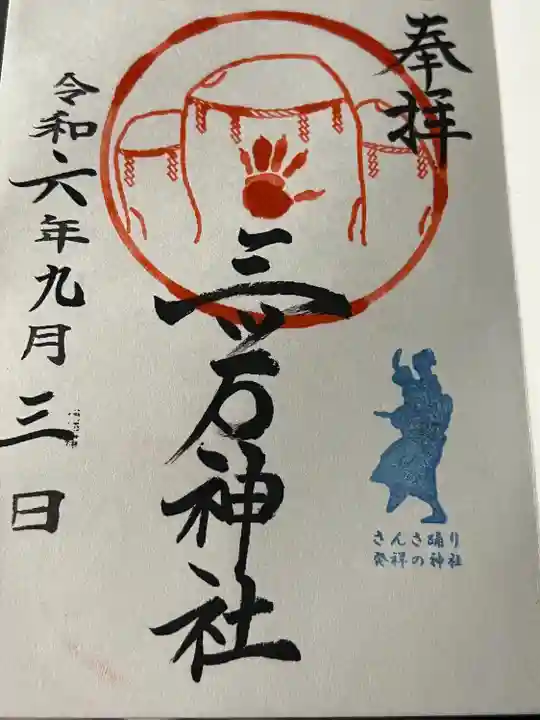 奉拝
三ツ石神社
令和六年九月三日
さんさ踊り
発祥の神社